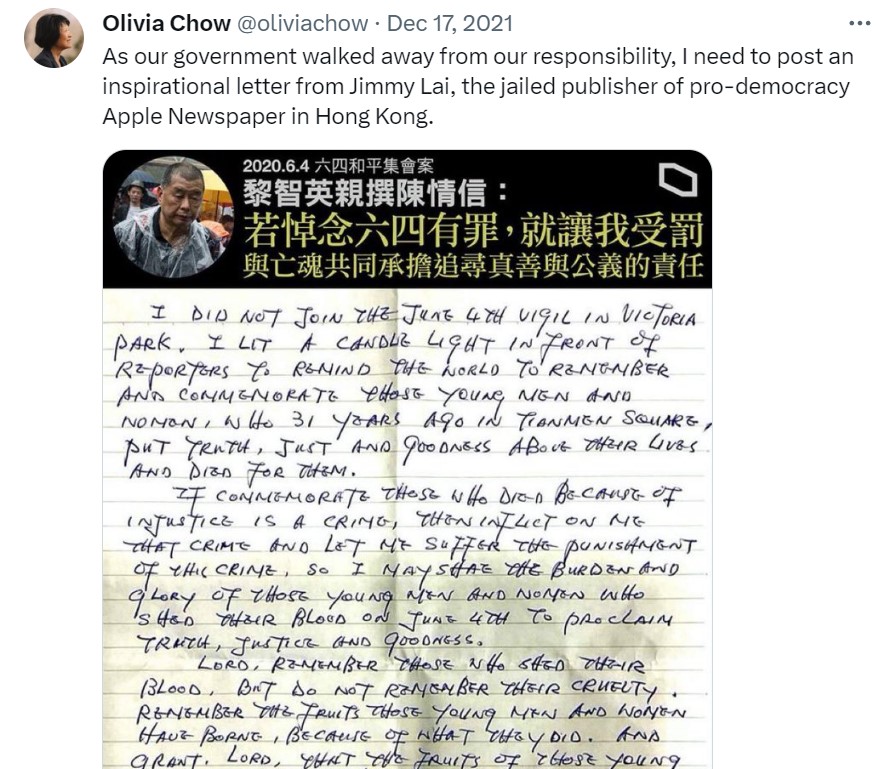 Olivia Chow @oliviachow · Dec 17, 2021
As our government walked away from our responsibility, I need to post an
inspirational letter from Jimmy Lai, the jailed publisher of pro-democracy
Apple Newspaper in Hong Kong.
2020.6.4 六四和平集會案
黎智英親撰陳情信：
若悼念六四有罪，就讓我受罰
與亡魂共同承擔追尋真善與公義的責任
I DID NOT JOIN THE JUNE 4TH VIGIL IN VICTORIA
PARK. I LIT A CANDLE LIGHT IN FRONT OF
REPORTERS TO REMIND THE WORLD TO REMEMBER
AND COMMEMORATE THOSE YOUNG MEN AND
WOMEN, WHO 31 YEARS AGO IN TIANMEN SQUARE,
PUT TRUTH, JUST AND GOODNESS ABOVE THEIR LIVES
AND DIED FOR THEM.
IF COMMEMORATE THOSE WHO DIED BECAUSE OF
INJUSTICE IS A CRIME, THEN INFLICT ON ME
THAT CRIME AND LET ME SUFFER THE PUNISHMENT
OF THIS CRIME, SO I MAY SHAE THE BURDEN AND
GLORY OF THOSE YOUNG MEN AND WOMEN WHO
SHED THEIR BLOOD ON JUNE 4TH TO PROCLAIM
TRUTH, JUSTICE AND GOODNESS.
LORD, REMEMBER THOSE WHO SHED THEIR
BLOOD, BUT DO NOT REMEMBER THEIR CRUELTY.
REMEMBER THE FRUITS THOSE YOUNG MEN AND WOMEN
HAVE BORNE, BECAUSE OF WHAT THEY DID. AND
GRANT, LORD, THAT THE FRUITS OF THOSE YOUNG